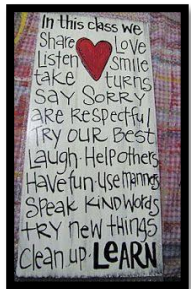 In this class we
Share Love
Listen smile
take turns
SAY SORRY
are respectful
TRY OUR BEST
Laugh · Help others
Have fun · Use manners
Speak KIND words
try new things
Clean up · LEARN